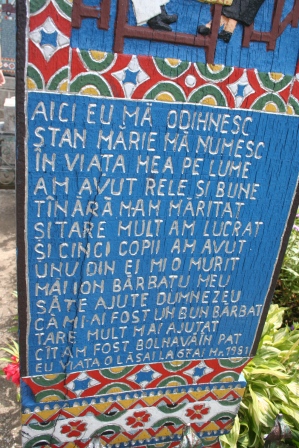 AICI EU MĂ ODIHNESC
ȘTAN MĂRIE MĂ NUMESC
ÎN VIAȚA MEA PE LUME
AM AVUT RELE ȘI BUNE
TÎNĂRĂ MAM MĂRITAT
ȘI TARE MULT AM LUCRAT
ȘI CINCI COPII AM AVUT
UNU DIN EI MIO MURIT
MĂI ION BĂRBATU MEU
SĂTE AJUTE DUMNEZEU
CĂ MI AI FOST UN BUN BĂRBAT
TARE MULT MAI AJUTAT
CÎT AM FOST BOLNAVĂ ÎN PAT
EU VIAȚA O LĂSAI LA 67 AI